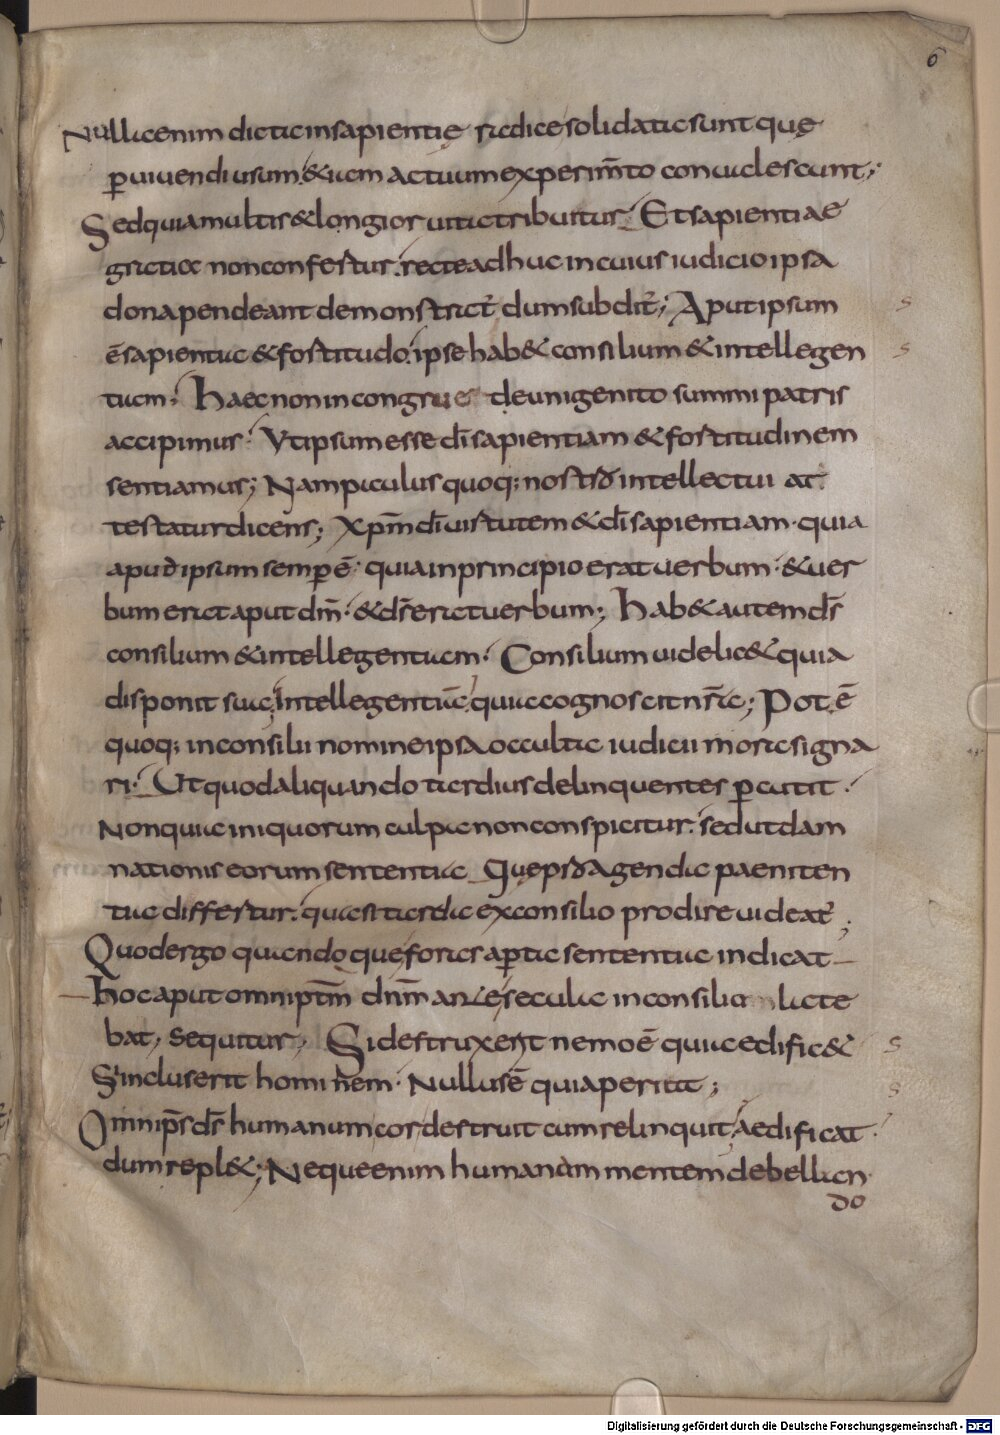 6
Nulla enim dicta in sapientię radice solidata sunt quę
p̱ uiuendi usum & iam actuum experim̄to conualescunt;
Sed quia multis & longior uita tribuitur. Et sapientiae
gratia non confertur. recte adhuc in cuius iudicio ipsa
dona pendeant demonstrat̄ dum subdit̄; Aput ipsum
ē sapientia & fortitudo. ipse hab& consilium & intellegen
tiam. Haec non incongrue de unigenito summi patris
accipimus. Ut ipsum esse dī sapientiam & fortitudinem
sentiamus; Nam paulus quoq; nostro intellectui at
testatur dicens; Xpm̄ dī uirtutem & dī sapientiam. quia
apud ipsum semp̱ ē. quia in principio erat uerbum. & uer
bum erat aput dm̄. & ds̄ erat uerbum; Hab& autem ds̄
consilium & intellegentiam. Consilium uidelic& quia
disponit sua, Intellegentiā quia cognoscit nr̄a; Pot ē
quoq; in consilii nomine ipsa occulta iudicii mora signa
ri. Ut quod aliquando tardius delinquentes p̱cutit.
Non quia iniquorum culpa non conspicitur. sed ut dam
nationis eorum sententia Quę pro agenda paeniten
tia differtur. quasi tarde ex consilio prodire uideat̄;
Quod ergo quando que foras ap̱ta sententia indicat
hoc aput omniptm̄ dnm̄ ante secula in consilio late
bat, sequitur, Si destruxerit nemo ē qui aedific&
Si incluserit hominem. Nullus ē qui aperiat;
Omnips̄ ds̄ humanum cor destruit cum relinquit, aedificat
dum repl&; Neque enim humanam mentem debellan
do
s
s
s
s
Digitalisierung gefördert durch die Deutsche Forschungsgemeinschaft - DFG